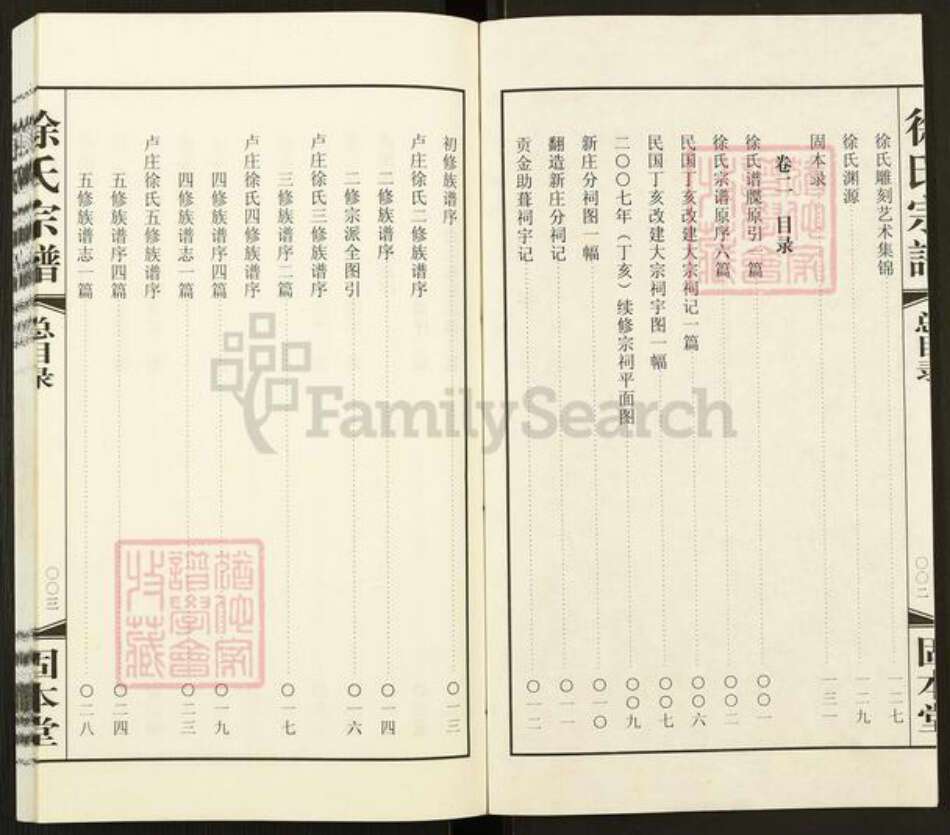 徐氏宗谱
总目录
〇〇二
固本堂
徐氏雕刻艺术集锦 一二七
徐氏渊源 一二九
固本录 一三一
卷二 目录
徐氏谱牒原引一篇 〇〇一
徐氏宗谱原序六篇 〇〇二
民国丁亥改建大宗祠记一篇 〇〇六
民国丁亥改建大宗祠宇图一幅 〇〇七
二〇〇七年（丁亥）续修宗祠平面图 〇〇九
新庄分祠图一幅 〇一〇
翻造新庄分祠记 〇一一
贡金助葺祠宇记 〇一二
初修族谱序 〇一三
卢庄徐氏二修族谱序
二修族谱序 〇一四
二修宗派全图引 〇一六
卢庄徐氏三修族谱序
三修族谱序二篇 〇一七
卢庄徐氏四修族谱序
四修族谱序四篇 〇一九
四修族谱志一篇 〇二三
卢庄徐氏五修族谱序
五修族谱序四篇 〇二四
五修族谱志一篇 〇二八
徐氏宗谱
总目录
〇〇三
固本堂
FamilySearch